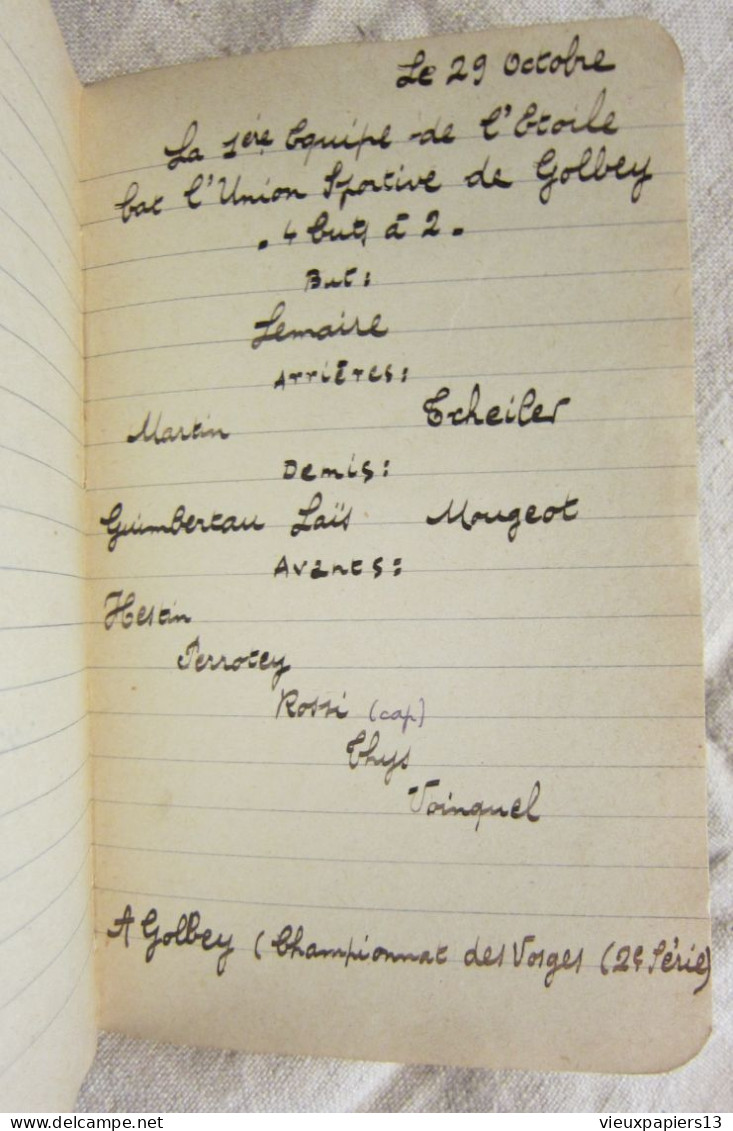 Le 29 Octobre
La 1ère Equipe de l'Etoile
bat l'Union Sportive de Golbey
. 4 buts à 2 .
But :
Lemaire
Arrières :
Martin Tcheiler
Demis :
Guimbertau Laïs Mougeot
Avants :
Hestin
Perrotey
Rossi (cap)
Thys
Voinquel
A Golbey (Championnat des Vosges (2e Série)
vieuxpapiers13